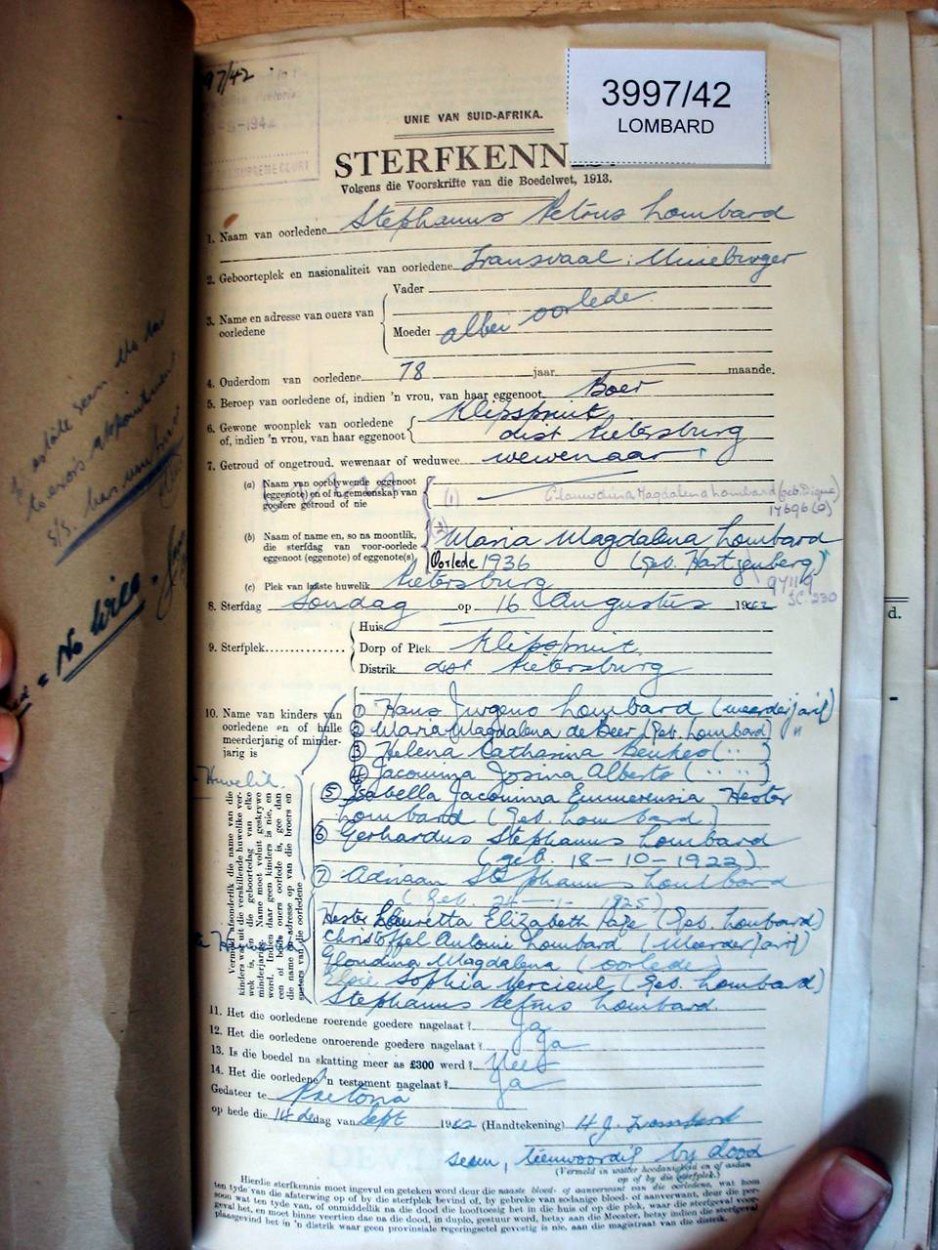 97/42
3997/42
LOMBARD
1942
SUPREME COURT
UNIE VAN SUID-AFRIKA.
STERFKENN
Volgens die Voorskrifte van die Boedelwet, 1913.
1. Naam van oorledene Stephanus Petrus Lombard
2. Geboorteplek en nasionaliteit van oorledene Transvaal: Unieburger
3. Name en adresse van ouers van oorledene
Vader
Moeder albei oorlede
4. Ouderdom van oorledene 78 jaar maande.
5. Beroep van oorledene of, indien 'n vrou, van haar eggenoot Boer
6. Gewone woonplek van oorledene of, indien 'n vrou, van haar eggenoot
Klipspruit
dist Pietersburg
7. Getroud of ongetroud, wewenaar of weduwee wewenaar
(a) Naam van oorblywende eggenoot (eggenote) en of in gemeenskap van goedere getroud of nie
(1) Magdalena Lombard (geb.
17696(0)
(b) Naam of name en, so na moontlik, die sterfdag van voor-oorlede eggenoot (eggenote) of eggenote(s)
(2) Maria Magdalena Lombard
Oorlede 1936 (Geb. Hartzenberg)
(c) Plek van laaste huwelik Pietersburg
8. Sterfdag Sondag op 16 Augustus 1942
9. Sterfplek
Huis
Dorp of Plek Klipspruit
Distrik dist Pietersburg
10. Name van kinders van oorledene en of hulle meerderjarig of minderjarig is
① Hans Jurgens Lombard (meerderjarig)
② Maria Magdalena de Beer (Geb. Lombard) "
③ Helena Catharina Beukes ( " " )
④ Jacomina Josina Alberts ( " " )
Huwelik
⑤ Isabella Jacomina Emmerensia Hester
Lombard (geb. Lombard)
⑥ Gerhardus Stephanus Lombard
(geb. 18-10-1922)
⑦ Adriaan Stephanus Lombard
1925)
Hester Lauretta Elizabeth Pape (Geb. Lombard)
Christoffel Antonie Lombard (Meerderjarig)
Magdalena (oorlede)
Sophia (Geb. Lombard)
Stephanus Petrus Lombard
Vermeld afsonderlik die name van die
kinders wat uit die verskillende huwelike ver-
wek is, en die geboortedag van elke
minderjarige. Name moet voluit geskrywe
word. Indien daar geen kinders is nie, en
een of beide ouers oorlede is, gee dan
die name en adresse op van die broers en
susters van die oorledene
11. Het die oorledene roerende goedere nagelaat? Ja
12. Het die oorledene onroerende goedere nagelaat? Ja
13. Is die boedel na skatting meer as £300 werd? Nee
14. Het die oorledene 'n testament nagelaat? Ja
Gedateer te Pretoria
op hede die 14 de dag van Sept 1942 (Handtekening) H J Lombard
seun, teenwoordig by dood
(Vermeld in watter hoedanigheid en of aldan
op of by die sterfplek.)
Hierdie sterfkennis moet ingevul en geteken word deur die naaste bloed- of aanverwant van die oorledene, wat hom
ten tyde van die afsterwing op of by die sterfplek bevind of, by gebreke van sodanige bloed- of aanverwant, deur die per-
soon wat ten tyde van, of onmiddellik na die dood die hooftoesig het in die huis of op die plek, waar die sterfgeval voor-
geval het, en moet binne veertien dae na die dood, in duplo, gestuur word, hetsy aan die Meester, hetsy indien die sterfgeval
plaasgevind het in 'n distrik waar geen provinsiale regeringsetel gevestig is nie, aan die magistraat van die distrik.
No Will
d.